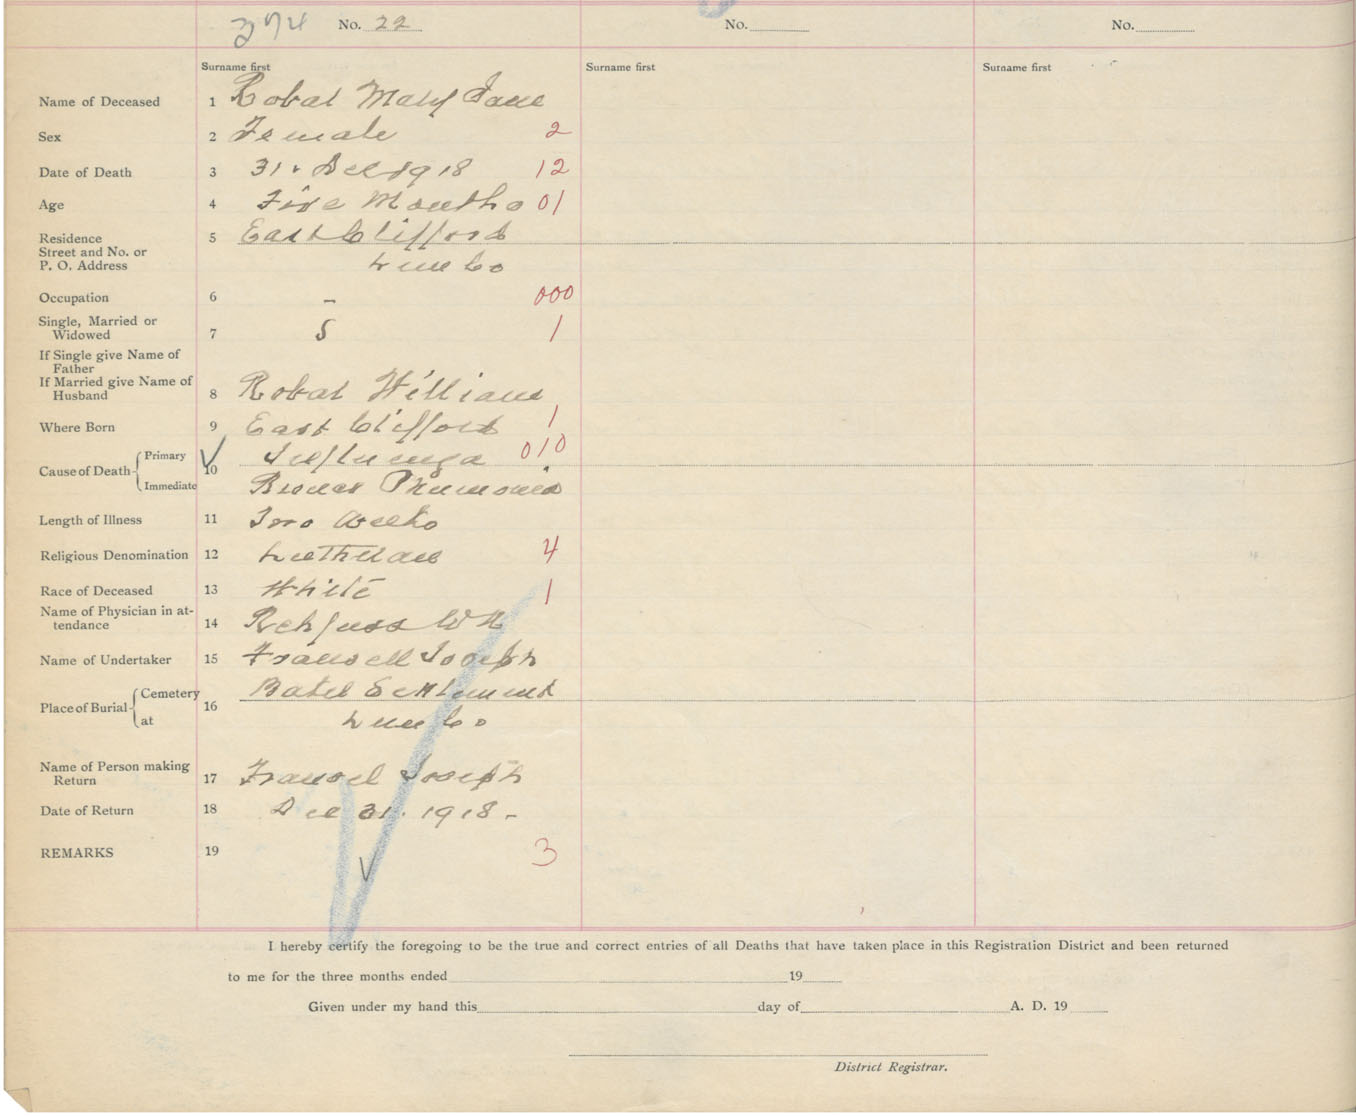 374 No. 22 No. No.
Surname first Surname first Surname first
Name of Deceased 1 Robar Mary Jane
Sex 2 Female 2
Date of Death 3 31. Dec 1918 12
Age 4 Five Months 01
Residence 5 East Clifford
Street and No. or
P. O. Address Lun Co
Occupation 6 - 000
Single, Married or
Widowed 7 S 1
If Single give Name of
Father
If Married give Name of
Husband 8 Robar William
Where Born 9 East Clifford 1
Cause of Death Primary 10 Influenza 010
Immediate Broncs Pneumonia
Length of Illness 11 Two Weeks
Religious Denomination 12 Lutheran 4
Race of Deceased 13 White 1
Name of Physician in at-
tendance 14 Rehfuss W H
Name of Undertaker 15 Joseph
Place of Burial Cemetery 16 Settlement
at Lun Co
Name of Person making
Return 17 Joseph
Date of Return 18 Dec 31. 1918 -
REMARKS 19 3
I hereby certify the foregoing to be the true and correct entries of all Deaths that have taken place in this Registration District and been returned
to me for the three months ended 19
Given under my hand this day of A. D. 19
District Registrar.